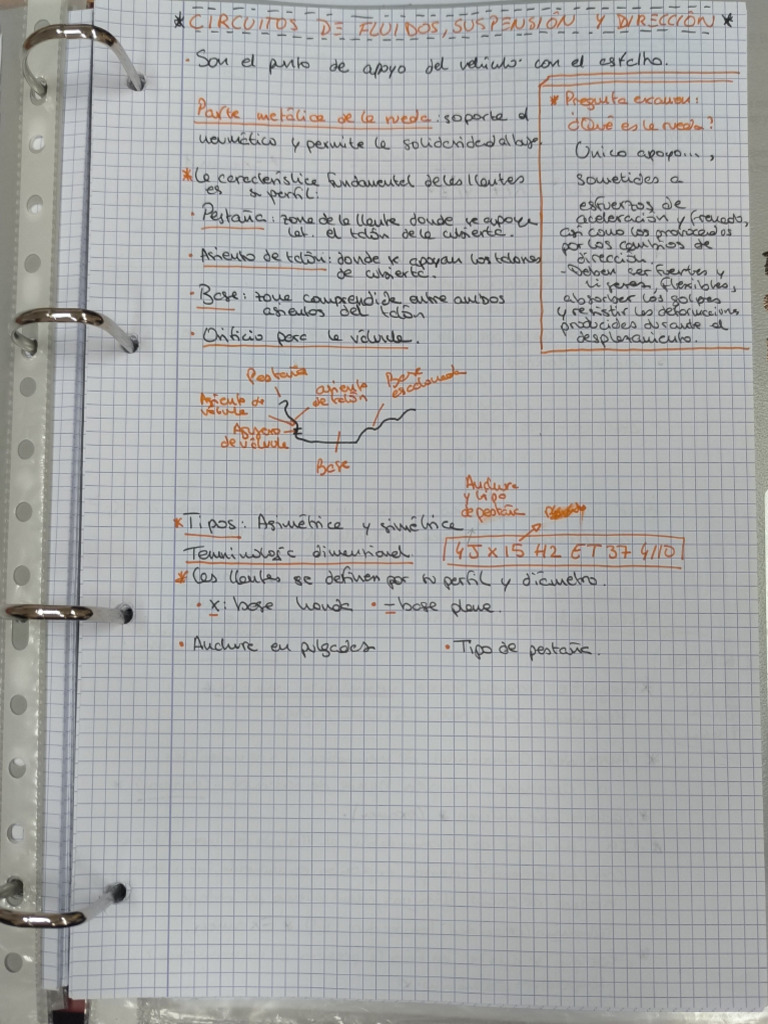 * CIRCUITOS DE FLUIDOS, SUSPENSIÓN Y DIRECCIÓN *
· Son el punto de apoyo del vehículo con el asfalto.
Parte metálica de la rueda: soporta el
neumático y permite la solidaridad al buje.
* La característica fundamental de las llantas
es su perfil:
· Pestaña: zona de la llanta donde se apoya
lat. el talón de la cubierta.
· Asiento de talón: donde se apoyan los talones
de cubierta.
· Base: zona comprendida entre ambos
asientos del talón
· Orificio para la válvula.
* Pregunta examen:
¿Qué es la rueda?
Único apoyo...,
sometidas a
esfuerzos de
aceleración y frenado,
así como los provocados
por los cambios de
dirección.
- Deben ser fuertes y
ligeras, flexibles,
absorber los golpes
y resistir las deformaciones
producidas durante el
desplazamiento.
Pestaña
Asiento de
válvula
asiento
de talón
Base
escalonada
Agujero
de válvula
Base
Anchura
y tipo
de pestaña
* Tipos: Asimétrica y simétrica
Terminología dimensional
4J X 15 H2 ET 37 4/110
* Las llantas se definen por su perfil y diámetro.
· x: base honda · - base plana.
· Anchura en pulgadas
· Tipo de pestaña.